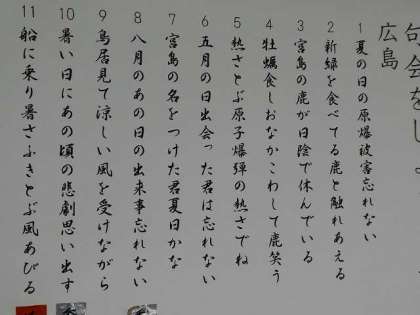 広島
1 夏の日の原爆被害忘れない
2 新緑を食べてる鹿と触れあえる
3 宮島の鹿が日陰で休んでいる
4 牡蠣食しおなかこわして鹿笑う
5 熱さとぶ原子爆弾の熱さでね
6 五月の日出会った君は忘れない
7 宮島の名をつけた君夏日かな
8 八月のあの日の出来事忘れない
9 鳥居見て涼しい風を受けながら
10 暑い日にあの頃の悲劇思い出す
11 船に乗り暑さふきとぶ風あびる